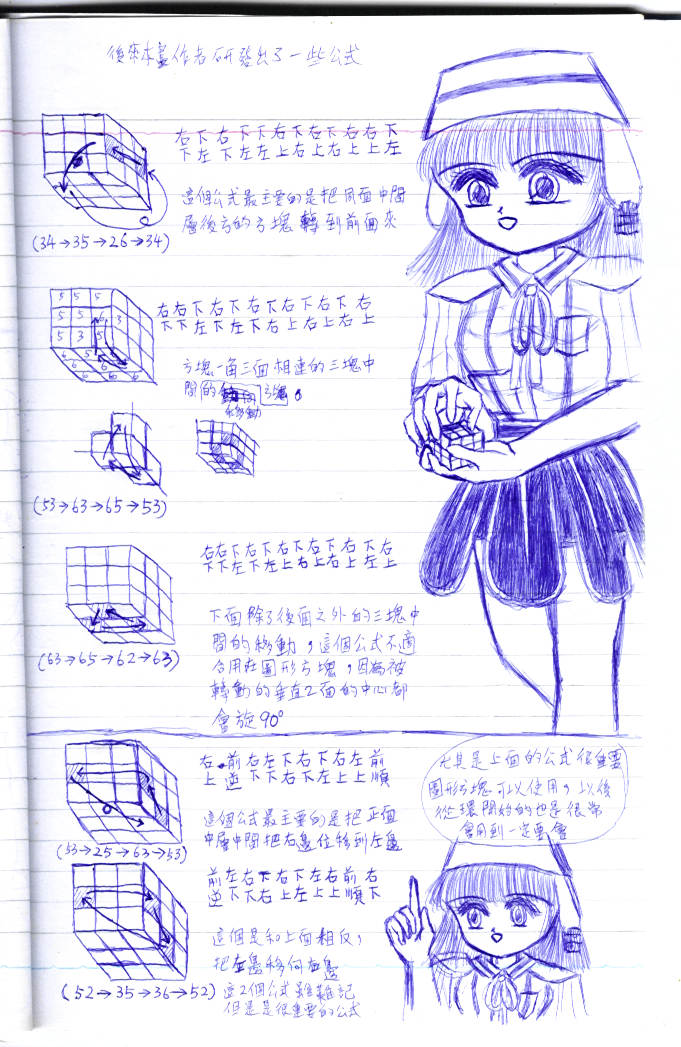 後來本畫作者研發出了一些公式
右下右下下右下右下右右下
下左下左左上右上右上上左
這個公式最主要的是把用面中間
層後方的方塊轉到前面來
(34→35→26→34)
右右下右下右下右下右下右
下下左下左下右上右上右上
5 5 5
5 5 6 3
5 3 5
6 6 6 6
方塊一角三面相連的三塊中
間的 方塊。
移動
(53→63→65→53)
右右下右下右下右下右下右
下下左下左上右上右上左上
下面除了後面之外的三塊中
間的移動,這個公式不適
合用在圖形方塊,因為被
轉動的垂直2面的中心都
會旋90°
(63→65→62→63)
右前右左下右下右左前
上逆下下右下左上上順
這個公式最主要的是把正面
中層中間把右邊位移到左邊
(53→25→63→53)
前左右下右下左右前右
逆下下右上左上上順下
這個是和上面相反,
把左邊移向右邊
(52→35→36→52)
這2個公式雖難記
但是是很重要的公式
尤其是上面的公式很重要
圖形方塊可以使用,以後
從環開始的也是很常
會用到一定要會